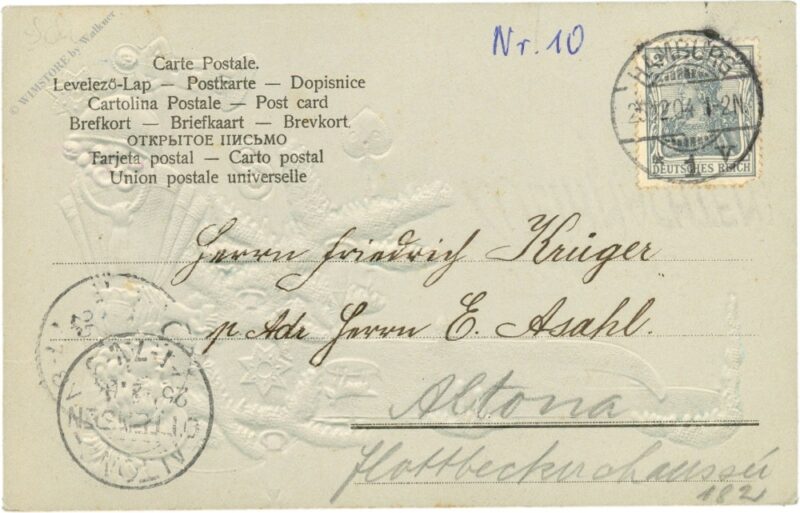 © WIMSTORE by Walkner
Nr. 10
Carte Postale.
Levelező-Lap — Postkarte — Dopisnice
Cartolina Postale — Post card
Brefkort — Briefkaart — Brevkort.
ОТКРЫТОЕ ПИСЬМО
Tarjeta postal — Carto postal
Union postale universelle
HAMBURG
1-2N
1
DEUTSCHES REICH
Herrn Friedrich Krüger
p Adr Herrn E. Asahl.
Altona
Flottbeckerchaussée
182
ALTONA
OTTENSEN